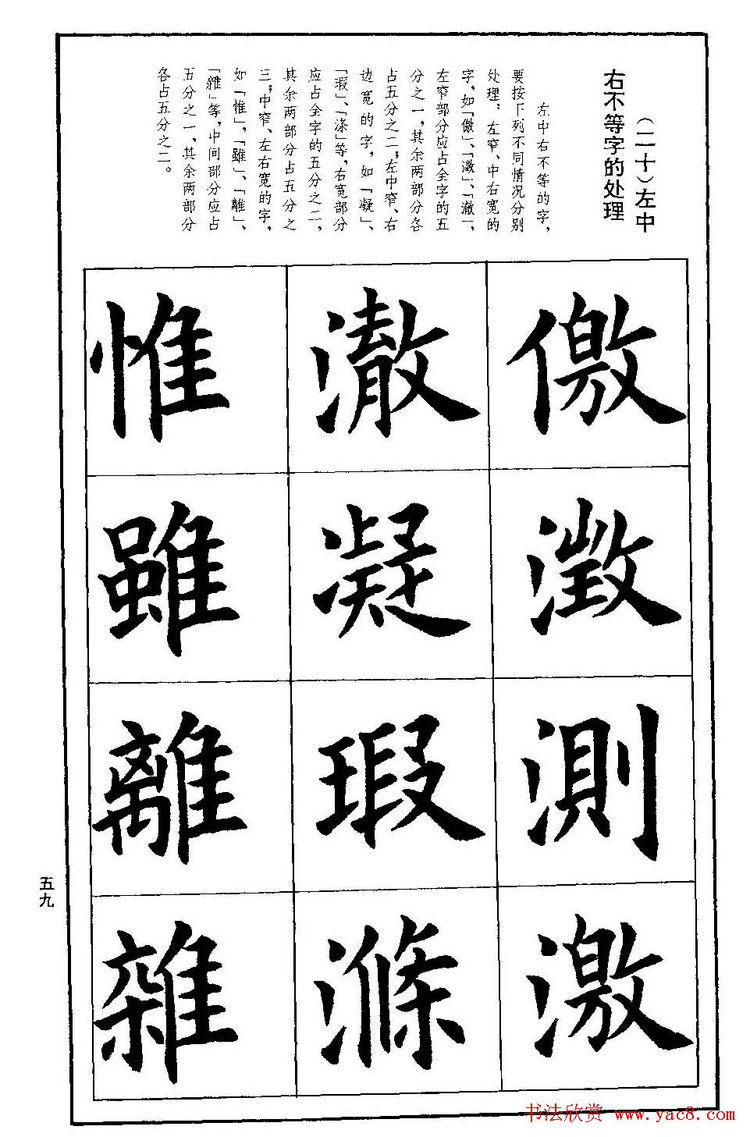 (二十)左中
右不等字的处理
左中右不等的字,
要按下列不同情况分别
处理:左窄、中右宽的
字,如「儌」、「激」、「澈」,
左窄部分应占全字的五
分之一,其余两部分各
占五分之二;左中窄、右
边宽的字,如「凝」、
「瑕」、「涤」等,右宽部分
应占全字的五分之二,
其余两部分占五分之
三;中窄、左右宽的字,
如「惟」、「雖」、「離」、
「雜」等,中间部分应占
五分之一、其余两部分
各占五分之二。
儌
澂
測
激
澈
凝
瑕
滌
惟
雖
離
雜
五九
书法欣赏 www.yac8.com